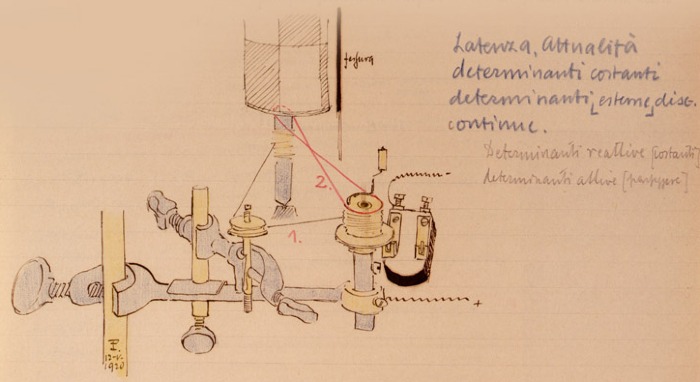 Latenza, Attualità
determinanti costanti
determinanti [esterne] disc.
continue.
Determinanti reattive [costanti]
determinanti attive
fessura
2.
1.
+
1920